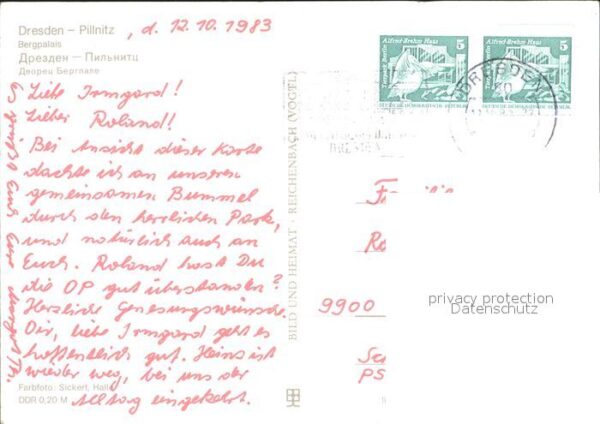 Dresden – Pillnitz , d. 12.10.1983
Bergpalais
Дрезден – Пильнитц
Дворец Бергпале
Liebe Irmgard!
Lieber Roland!
Bei Ansicht dieser Karte
dachte ich an unseren
gemeinsamen Bummel
durch den herrlichen Park,
und natürlich auch an
Euch. Roland hast Du
die OP gut überstanden?
Herzliche Genesungswünsche
Dir, liebe Irmgard geht es
hoffentlich gut. Heins ist
wieder weg, bei uns der
Alltag eingekehrt.
Es grüßt Euch Eure
Farbfoto: Sickert, Halle
DDR 0,20 M
BILD UND HEIMAT · REICHENBACH (VOGTL)
Alfred-Brehm Haus
5
Tierpark Berlin
DEUTSCHE DEMOKRATISCHE REPUBLIK
Alfred-Brehm Haus
5
Tierpark Berlin
DEUTSCHE DEMOKRATISCHE REPUBLIK
DRESDEN
DRESDEN
9900
PS
privacy protection
Datenschutz